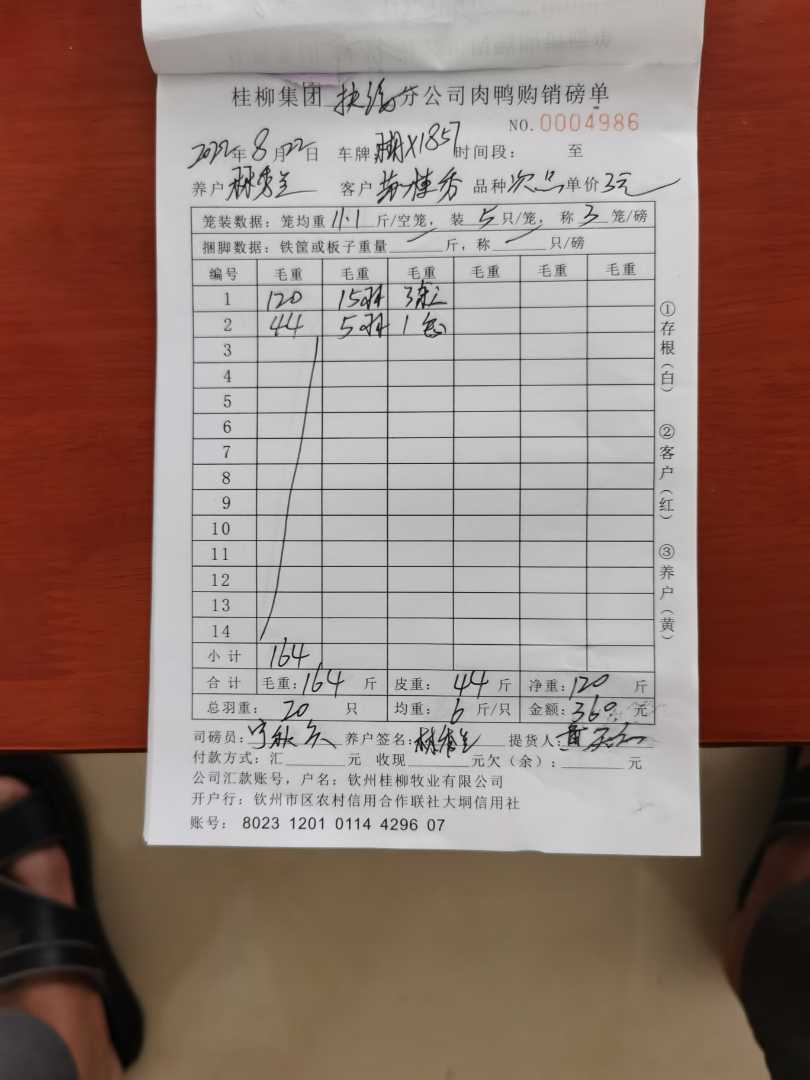 桂柳集团 分公司肉鸭购销磅单
NO.0004986
2022年8月22日 车牌 X1857 时间段: 至
养户 林秀兰 客户 品种 次品 单价 3元
笼装数据: 笼均重 11.1 斤/空笼, 装 5 只/笼, 称 3 笼/磅
捆脚数据: 铁筐或板子重量 斤, 称 只/磅
编号 毛重 毛重 毛重 毛重 毛重 毛重
1 120 15羽 3
2 44 5羽 1
3
4
5
6
7
8
9
10
11
12
13
14
小计 164
合计 毛重: 164 斤 皮重: 44 斤 净重: 120 斤
总羽重: 20 只 均重: 6 斤/只 金额: 360 元
司磅员: 养户签名: 林秀兰 提货人:
付款方式: 汇 元 收现 元欠(余): 元
公司汇款账号, 户名: 钦州桂柳牧业有限公司
开户行: 钦州市区农村信用合作联社大垌信用社
账号: 8023 1201 0114 4296 07
①存根(白) ②客户(红) ③养户(黄)